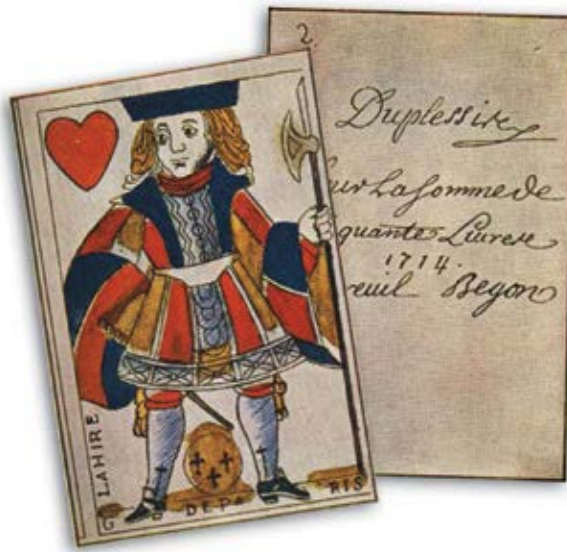 LAHIRE
DE PARIS
2.
Duplessis
ur La Somme de
quante Livres
1714.
reuil Begon